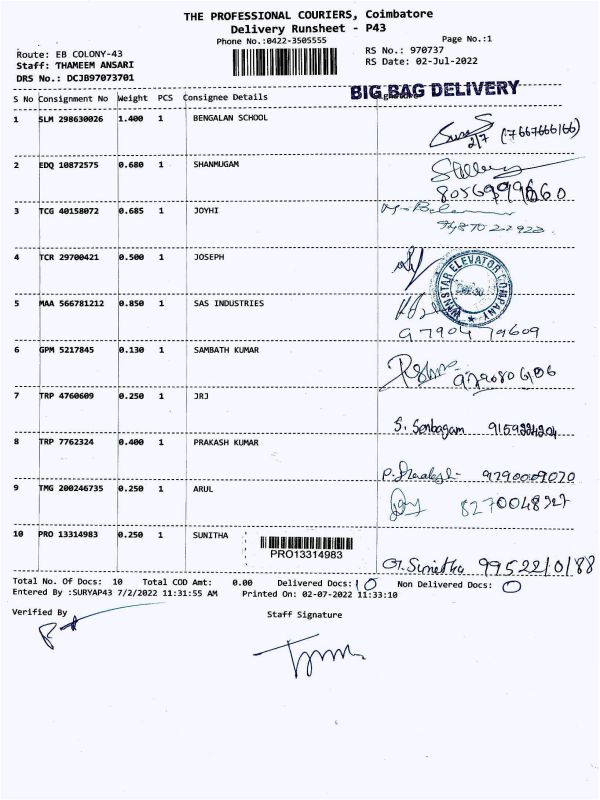 THE PROFESSIONAL COURIERS, Coimbatore
Delivery Runsheet - P43
Phone No.:0422-3505555
Page No.:1
Route: EB COLONY-43
RS No.: 970737
Staff: THAMEEM ANSARI
RS Date: 02-Jul-2022
DRS No.: DCJB97073701
BIG BAG DELIVERY
S No Consignment No Weight PCS Consignee Details
1 SLM 298630026 1.400 1 BENGALAN SCHOOL
2/7 (7667666166)
2 EDQ 10872575 0.680 1 SHANMUGAM
3 TCG 40158072 0.685 1 JOYHI
4 TCR 29700421 0.500 1 JOSEPH
WINSTAR ELEVATOR COMPANY
5 MAA 566781212 0.850 1 SAS INDUSTRIES
6 GPM 5217845 0.130 1 SAMBATH KUMAR
7 TRP 4760609 0.250 1 JRJ
S. Senbagam
8 TRP 7762324 0.400 1 PRAKASH KUMAR
9790009020
9 TMG 200246735 0.250 1 ARUL
10 PRO 13314983 0.250 1 SUNITHA
PRO13314983
Sunitha 9952210188
Total No. Of Docs: 10 Total COD Amt: 0.00 Delivered Docs: 10 Non Delivered Docs: 0
Entered By :SURYAP43 7/2/2022 11:31:55 AM Printed On: 02-07-2022 11:33:10
Verified By
Staff Signature